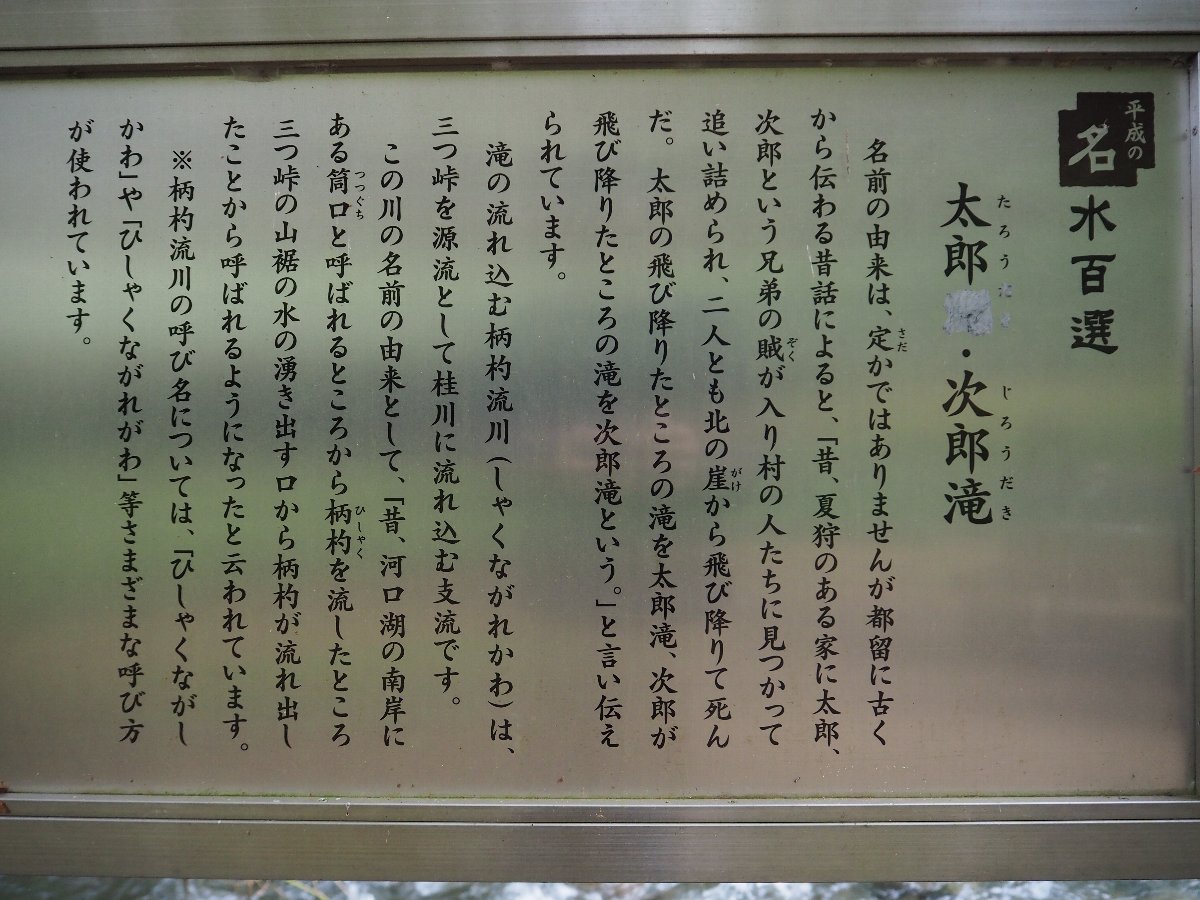 平成の
名水百選
太郎・次郎滝
たろうだき じろうだき
名前の由来は、定かではありませんが都留に古く
から伝わる昔話によると、「昔、夏狩のある家に太郎、
次郎という兄弟の賊が入り村の人たちに見つかって
追い詰められ、二人とも北の崖から飛び降りて死ん
だ。太郎の飛び降りたところの滝を太郎滝、次郎が
飛び降りたところの滝を次郎滝という。」と言い伝え
られています。
滝の流れ込む柄杓流川(しゃくながれかわ)は、
三つ峠を源流として桂川に流れ込む支流です。
この川の名前の由来として、「昔、河口湖の南岸に
ある筒口と呼ばれるところから柄杓を流したところ
三つ峠の山裾の水の湧き出す口から柄杓が流れ出し
たことから呼ばれるようになったと云われています。
※柄杓流川の呼び名については、「ひしゃくながし
かわ」や「ひしゃくながれがわ」等さまざまな呼び方
が使われています。
さだ
ぞく
がけ
つつぐち
ひしゃく